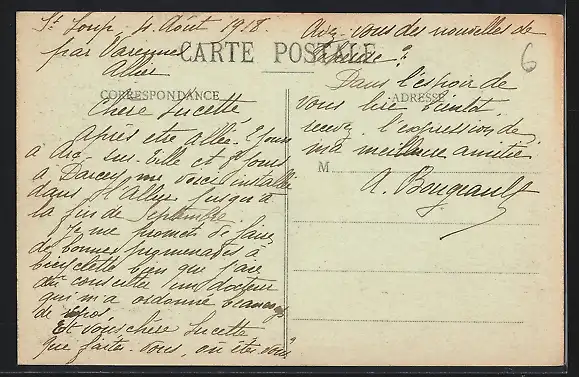 St Loup - 4 Août 1918.
par Varennes
Allier
CARTE POSTALE
CORRESPONDANCE
Chère Lucette,
après être allée 8 jours
à Arc-sur-Tille et 8 jours
à Darcey, me voici installée
dans l'Allier jusqu'à
la fin de Septembre.
Je me promets de faire
de bonnes promenades à
bicyclette bien que j'aie
dû consulter un docteur
qui m'a ordonné beaucoup
de repos.
Et vous chère Lucette
que faites-vous, où êtes-vous
Avez-vous des nouvelles de
?
6
ADRESSE
Dans l'espoir de
vous lire bientôt,
recevez l'expression de
ma meilleure amitié
M
A. Bougeault